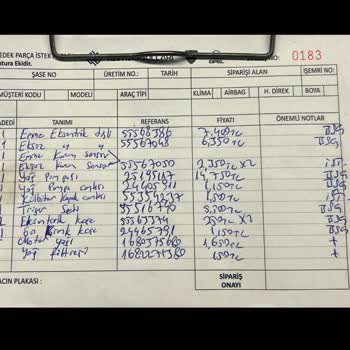 EDEK PARÇA İSTEK
OPEL NO: 0183
atura Ekidir.
ŞASE NO ÜRETİM NO.: TARİH SİPARİŞİ ALAN İŞEMRİ NO:
MÜŞTERİ KODU MODELİ ARAÇ TİPİ KLİMA AIRBAG H. DİREK BOYA
ADEDİ TANIMI REFERANS FİYATI ÖNEMLİ NOTLAR
1 Emme Eksantrik dişli 55568386 7,400 TL
1 Egzoz " " 55567048 6,350 TL
1 Emme Kam Sensör
1 Egzoz Kam Sensör 55567050 2,350 TL X2
1 Yağ Pompası 25195117 14,750 TL
1 Yağ Pompa contası 24405911 1,150 TL
1 Külbütör Kapak contası 55354237 1,850 TL
1 Triger Seti 95516740 5,500 TL
1 Eksantrik keçe 55565374 250 TL X2
1 ön krank keçe 24465791 1,150 TL
Motor yağı 1680375680 1,650 TL +
yağ filtresi 1682271380 350 TL +
ACIN PLAKASI : SİPARİŞ
ONAYI